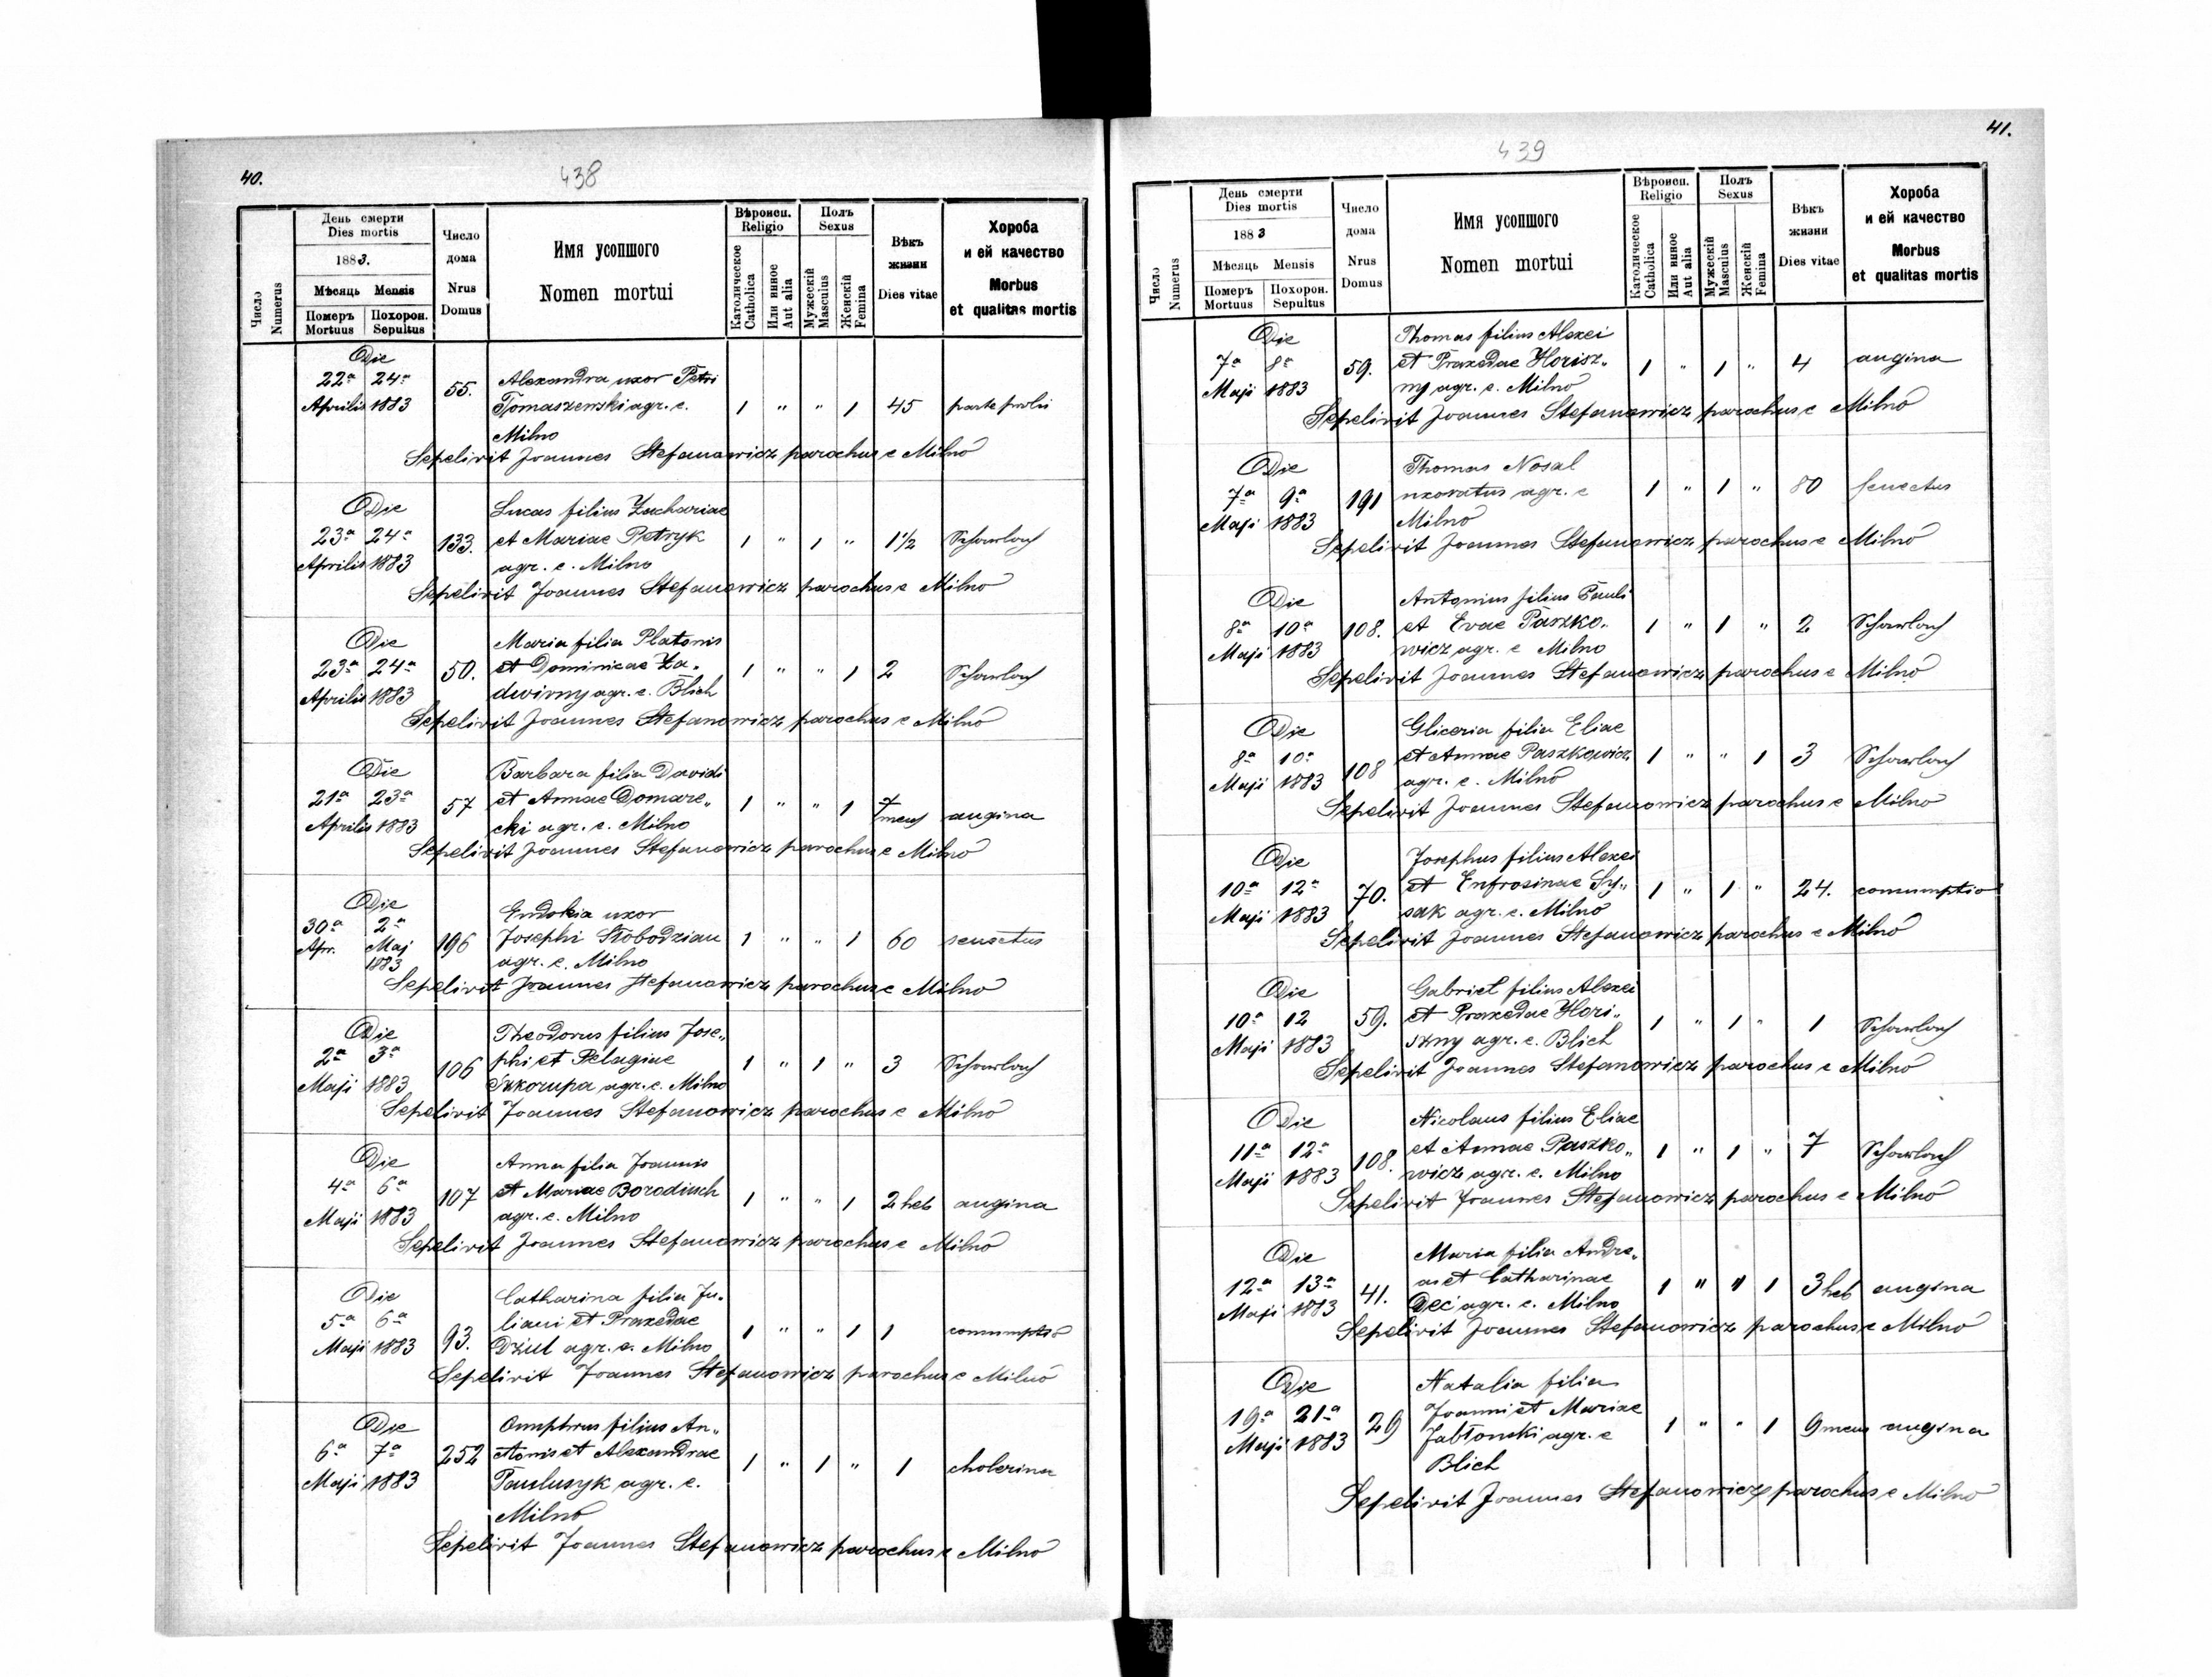 40.
438
Число
Numerus
День смерти
Dies mortis
1883.
Мѣсяць Mensis
Померъ
Mortuus
Похорон.
Sepultus
Число
дома
Nrus
Domus
Имя усопшого
Nomen mortui
Вѣроисп.
Religio
Католическое
Catholica
Или инное
Aut alia
Полъ
Sexus
Мужескій
Masculus
Женскій
Femina
Вѣкъ
жизни
Dies vitae
Хороба
и ей качество
Morbus
et qualitas mortis
Die
22ª 24ª Aprilis 1883
55.
Alexandra uxor Petri
Tomaszewski agr. e.
Milno
1 " " 1 45
Sepelivit Joannes Stefanowicz parochus e Milno
Die
23ª 24ª Aprilis 1883
133.
Lucas filius Zachariae
et Mariae Petryk
agr. e. Milno
1 " 1 " 1½ Scharlach
Sepelivit Joannes Stefanowicz parochus e Milno
Die
23ª 24ª Aprilis 1883
50.
Maria filia Platonis
et Dominicae Za„
dwirny agr. e. Blich
1 " " 1 2 Scharlach
Sepelivit Joannes Stefanowicz parochus e Milno
Die
21ª 23ª Aprilis 1883
57
Barbara filia Davidi
et Annae Domare„
cki agr. e. Milno
1 " " 1 7 mens angina
Sepelivit Joannes Stefanowicz parochus e Milno
Die
30ª Apr. 2ª Maj 1883
196
Eudokia uxor
Josephi Słobodzian
agr. e. Milno
1 " " 1 60 senectus
Sepelivit Joannes Stefanowicz parochus e Milno
Die
2ª 3ª Maji 1883
106
Theodorus filius Jose„
phi et Pelagiae
Szkorupa agr. e. Milno
1 " 1 " 3 Scharlach
Sepelivit Joannes Stefanowicz parochus e Milno
Die
4ª 6ª Maji 1883
107
Anna filia Joannis
et Mariae
agr. e. Milno
1 " " 1 2 heb angina
Sepelivit Joannes Stefanowicz parochus e Milno
Die
5ª 6ª Maji 1883
93.
Catharina filia Ju„
liani et Praxedae
Dziul agr. e. Milno
1 " " 1 1 consumptio
Sepelivit Joannes Stefanowicz parochus e Milno
Die
6ª 7ª Maji 1883
252
Onuphrius filius An„
tonis et Alexandrae
Pauluszyk agr. e.
Milno
1 " 1 " 1 cholerina
Sepelivit Joannes Stefanowicz parochus e Milno
41.
439
Число
Numerus
День смерти
Dies mortis
1883
Мѣсяць Mensis
Померъ
Mortuus
Похорон.
Sepultus
Число
дома
Nrus
Domus
Имя усопшого
Nomen mortui
Вѣроисп.
Religio
Католическое
Catholica
Или инное
Aut alia
Полъ
Sexus
Мужескій
Masculus
Женскій
Femina
Вѣкъ
жизни
Dies vitae
Хороба
и ей качество
Morbus
et qualitas mortis
Die
7ª 8ª Maji 1883
59.
Thomas filius Alexei
et Praxedae Horisz„
ny agr. e. Milno
1 " 1 " 4 angina
Sepelivit Joannes Stefanowicz parochus e Milno
Die
7ª 9ª Maji 1883
191
Thomas Nosal
uxoratus agr. e
Milno
1 " 1 " 80 senectus
Sepelivit Joannes Stefanowicz parochus e Milno
Die
8ª 10ª Maji 1883
108.
Antonius filius Pauli
et Evae Paszko„
wicz agr. e Milno
1 " 1 " 2 Scharlach
Sepelivit Joannes Stefanowicz parochus e Milno
Die
8ª 10ª Maji 1883
108
Gliceria filia Eliae
et Annae Paszkowicz
agr. e. Milno
1 " " 1 3 Scharlach
Sepelivit Joannes Stefanowicz parochus e Milno
Die
10ª 12ª Maji 1883
70.
Josephus filius Alexei
et Eufrosinae Sy„
sak agr. e. Milno
1 " 1 " 24. consumptio
Sepelivit Joannes Stefanowicz parochus e Milno
Die
10ª 12 Maji 1883
59.
Gabriel filius Alexei
et Praxedae Hori„
szny agr. e. Blich
1 " 1 " 1 Scharlach
Sepelivit Joannes Stefanowicz parochus e Milno
Die
11ª 12ª Maji 1883
108.
Nicolaus filius Eliae
et Annae Paszko„
wicz agr. e. Milno
1 " 1 " 7 Scharlach
Sepelivit Joannes Stefanowicz parochus e Milno
Die
12ª 13ª Maji 1883
41.
Maria filia Andre„
ae et Catharinae
Deć agr. e. Milno
1 " " 1 3 heb angina
Sepelivit Joannes Stefanowicz parochus e Milno
Die
19ª 21ª Maji 1883
29
Natalia filia
Joanni et Mariae
Jabłonski agr. e
Blich
1 " " 1 9 mens angina
Sepelivit Joannes Stefanowicz parochus e Milno